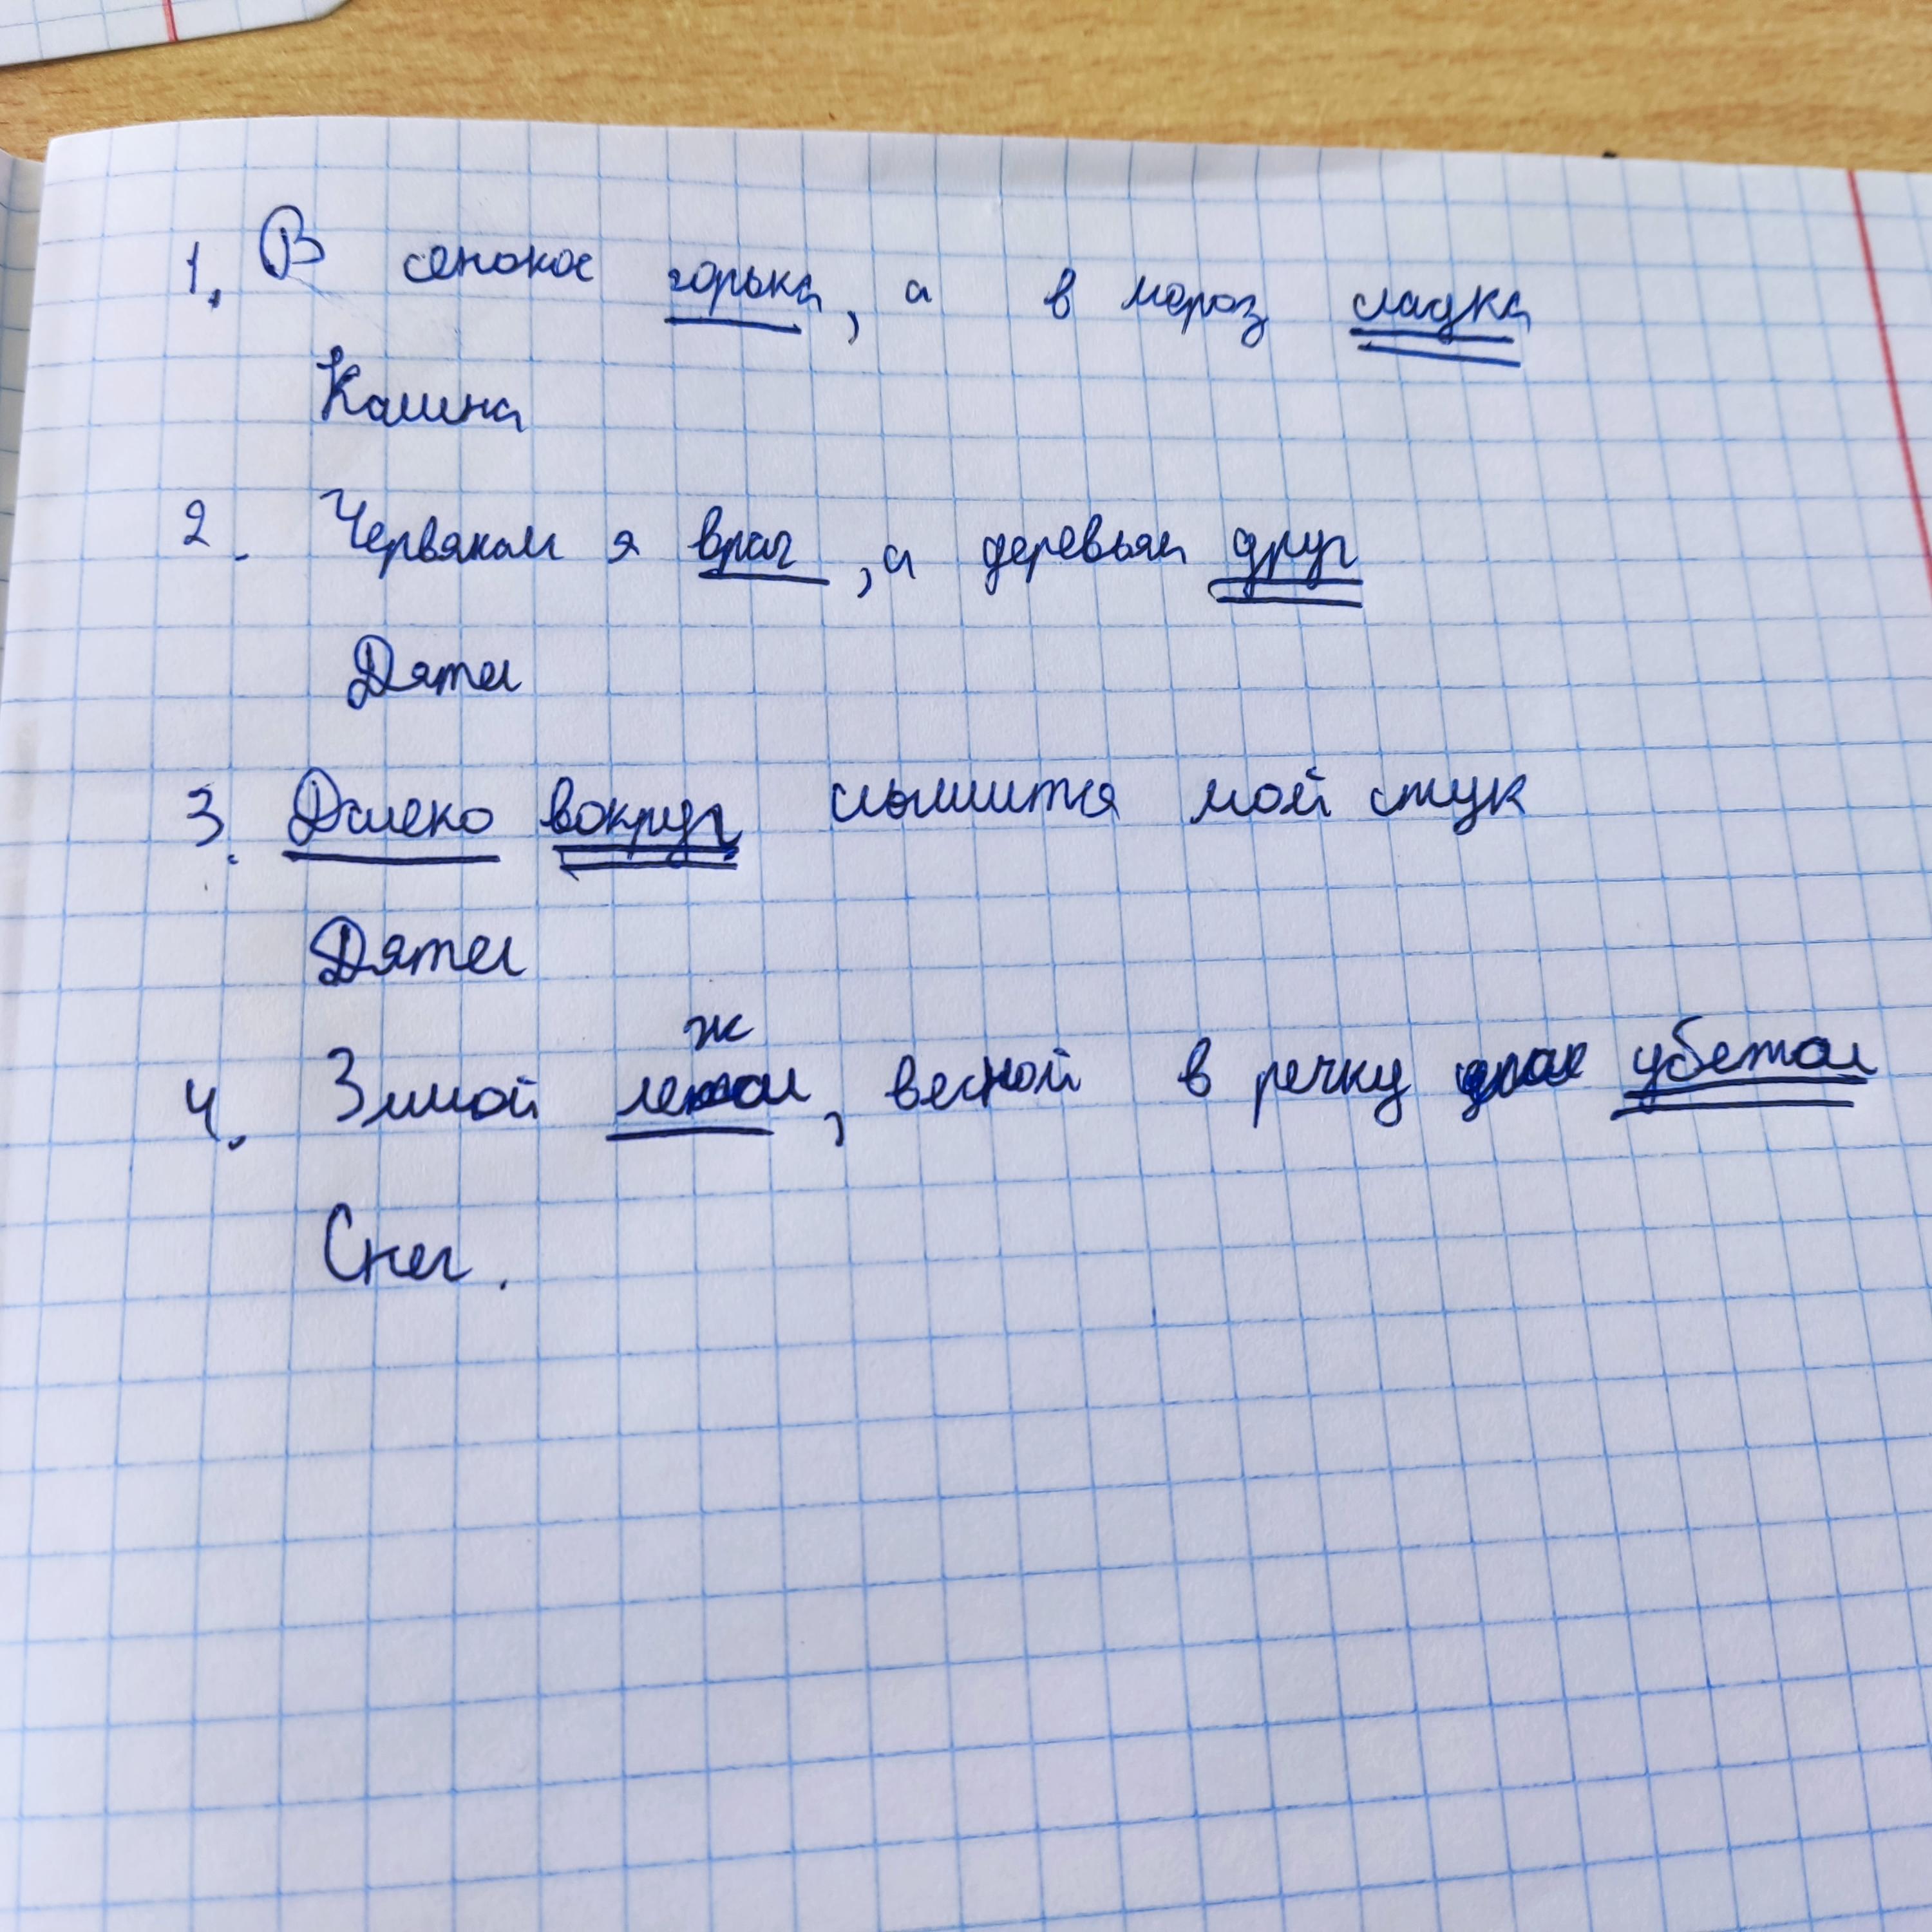 1. В сенокос горька, а в мороз сладка
Калина
2. Червякам я врач, а деревьям друг
Дятел
3. Далеко вокруг слышится мой стук
Дятел
4. Зимой лежал, весной в речку убежал
Снег.